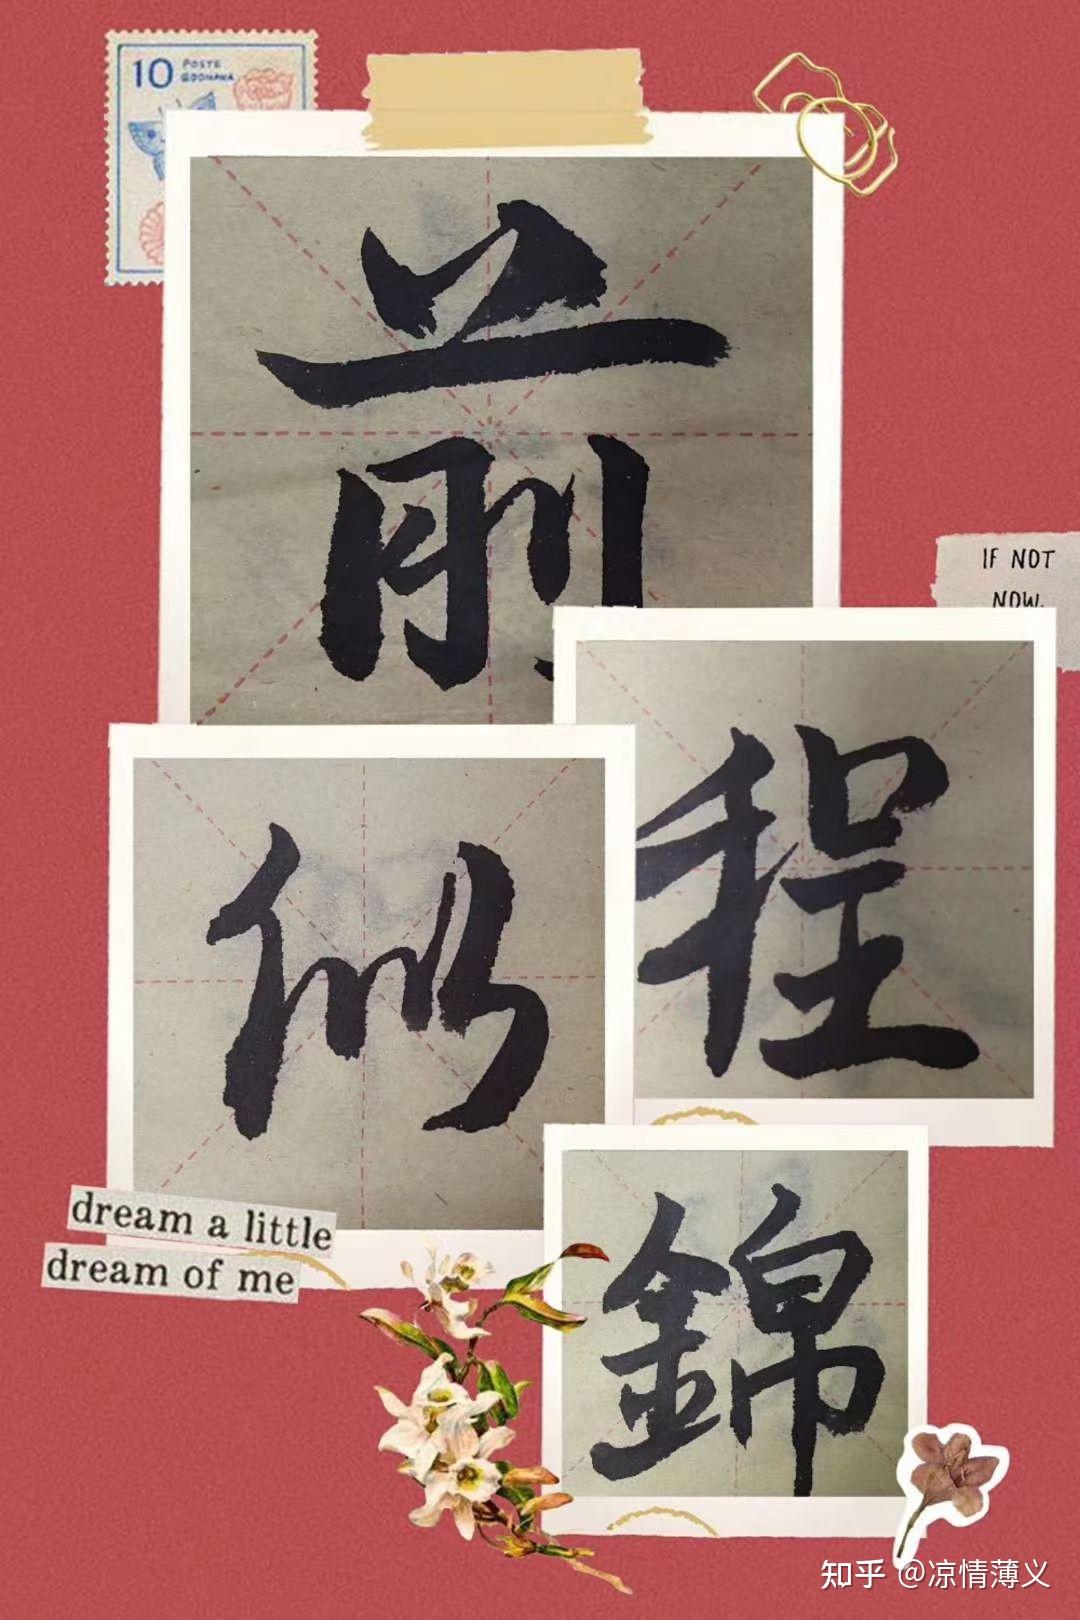 10 POSTE
GOONAWA
前
IF NOT
NOW,
程
似
dream a little
dream of me
錦
知乎 @凉情薄义